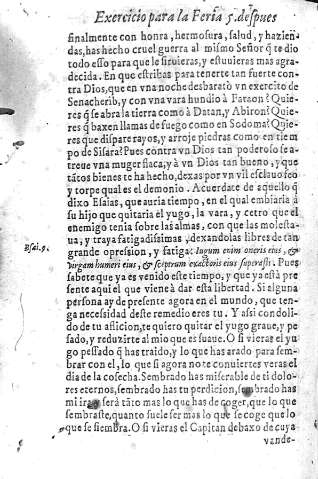 Exercicio para la Feria 5. despues
finalmente con honra, hermosura, salud, y hazien-
das, has hecho cruel guerra al mismo Señor q̃ te dio
todo esso para que le siruieras, y estuuieras mas agra-
decida. En que estribas para tenerte tan fuerte con-
tra Dios, que en vna noche desbaratò vn exercito de
Senacherib, y con vna vara hundio à Faraon? Quie-
res q̃ se abra la tierra como à Datan, y Abiron? Quie-
res q̃ baxen llamas de fuego como en Sodoma? Quie-
res que dispare rayos, y arroje piedras como en tiem-
po de Sisara? Pues contra vn Dios tan poderoso se a-
treue vna muger flaca, y à vn Dios tan bueno, y que
tãtos bienes te ha hecho, dexas por vn vil esclauo feo
y torpe qual es el demonio. Acuerdate de aquello q̃
dixo Esaias, que auria tiempo, en el qual embiaria à
su hijo que quitaria el yugo, la vara, y cetro que el
enemigo tenia sobre las almas, con que las molesta-
Esai. 9.
ua, y traya fatigadissimas, dexandolas libres de tan
grande opression, y fatiga: Iugum enim oneris eius, &
virgam humeri eius, & sceptrum exactoris eius superasti. Pues
sabete que ya es venido este tiempo, y que ya està pre
sente aqui el que viene à dar esta libertad. Si alguna
persona ay de presente agora en el mundo, que ten-
ga necesidad deste remedio eres tu. Y assi condoli-
do de tu aflicion, te quiero quitar el yugo graue, y pe
sado, y reduzirte al mio que es suaue. O si vieras el yu
go pessado q̃ has traido, y lo que has arado para sem-
brar con el, lo que si agora no te conuiertes veras el
dia de la cosecha. Sembrado has miserable de ti dolo-
res eternos, sembrado has tu perdicion, sembrado has
mi ira, y será tãto mas lo que has de coger, que lo que
sembraste, quanto suele ser mas lo que se coge que lo
que se siembra. O si vieras el Capitan debaxo de cuya
vande-